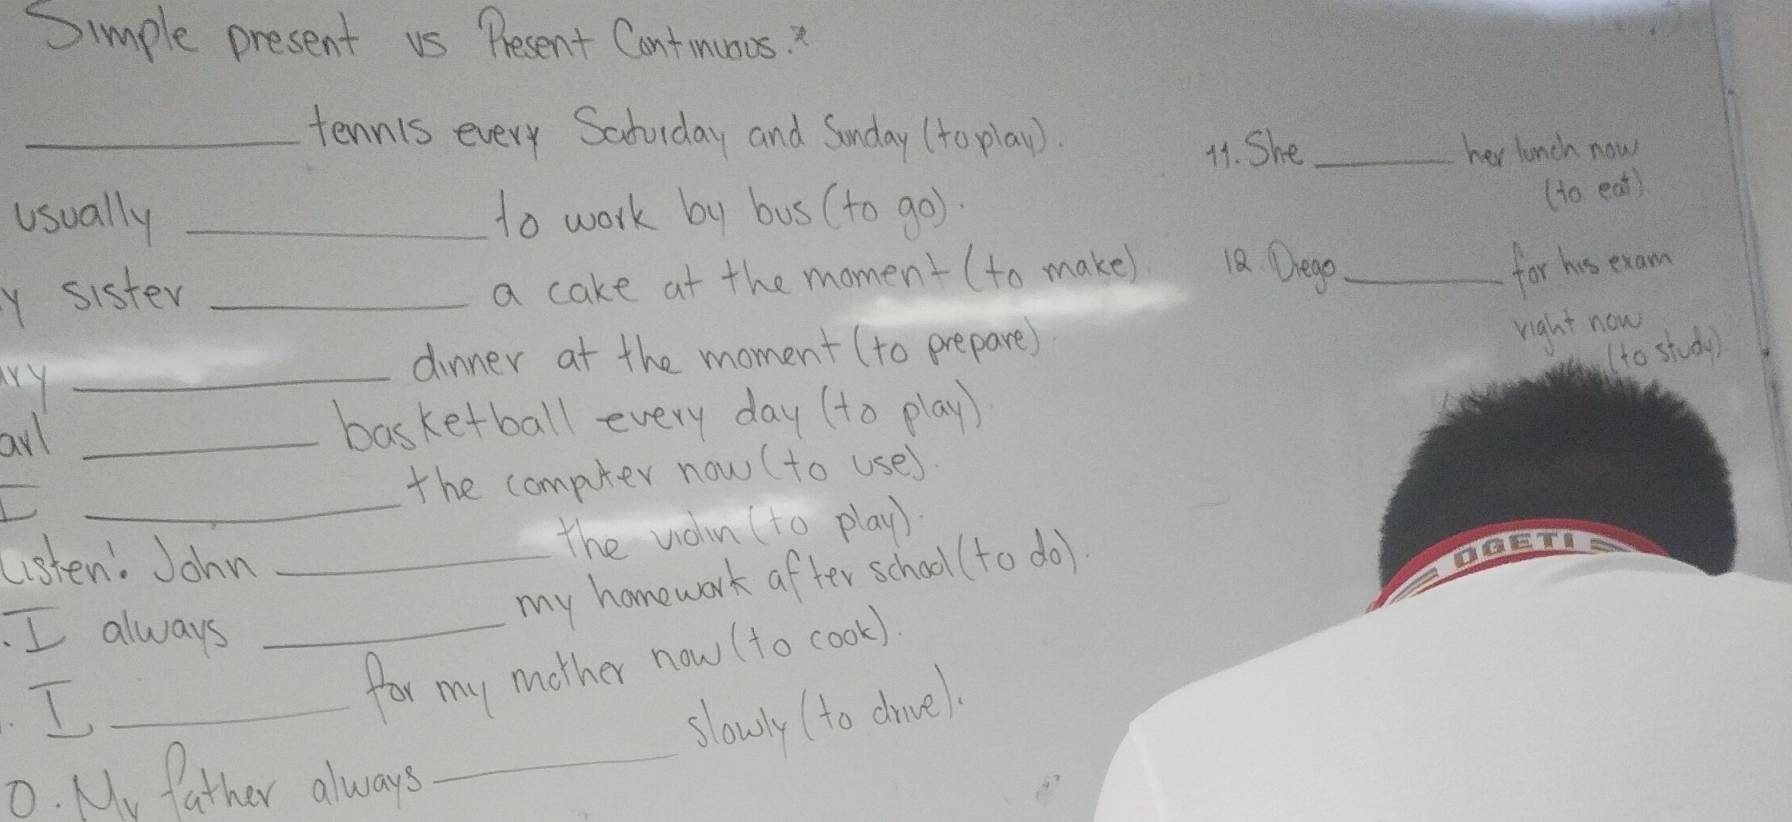 Simple present vs Present Continuous.*
__________ tennis every Saturday and Sunday (to play).
usually __________ to work by bus (to go).
y sister __________ a cake at the moment (to make).
ry __________ dinner at the moment (to prepare)
arl __________ basketball every day (to play).
I __________ the computer now (to use).
Listen! John __________ the violin (to play).
. I always __________ my homework after school (to do).
. I __________ for my mother now (to cook).
0. My father always __________ slowly (to drive).
11. She __________ her lunch now
(to eat).
12. Diego __________ for his exam
right now
(to study)
OGETI